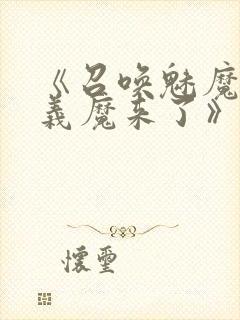 《召唤魅魔
義魔来了》
懷璽